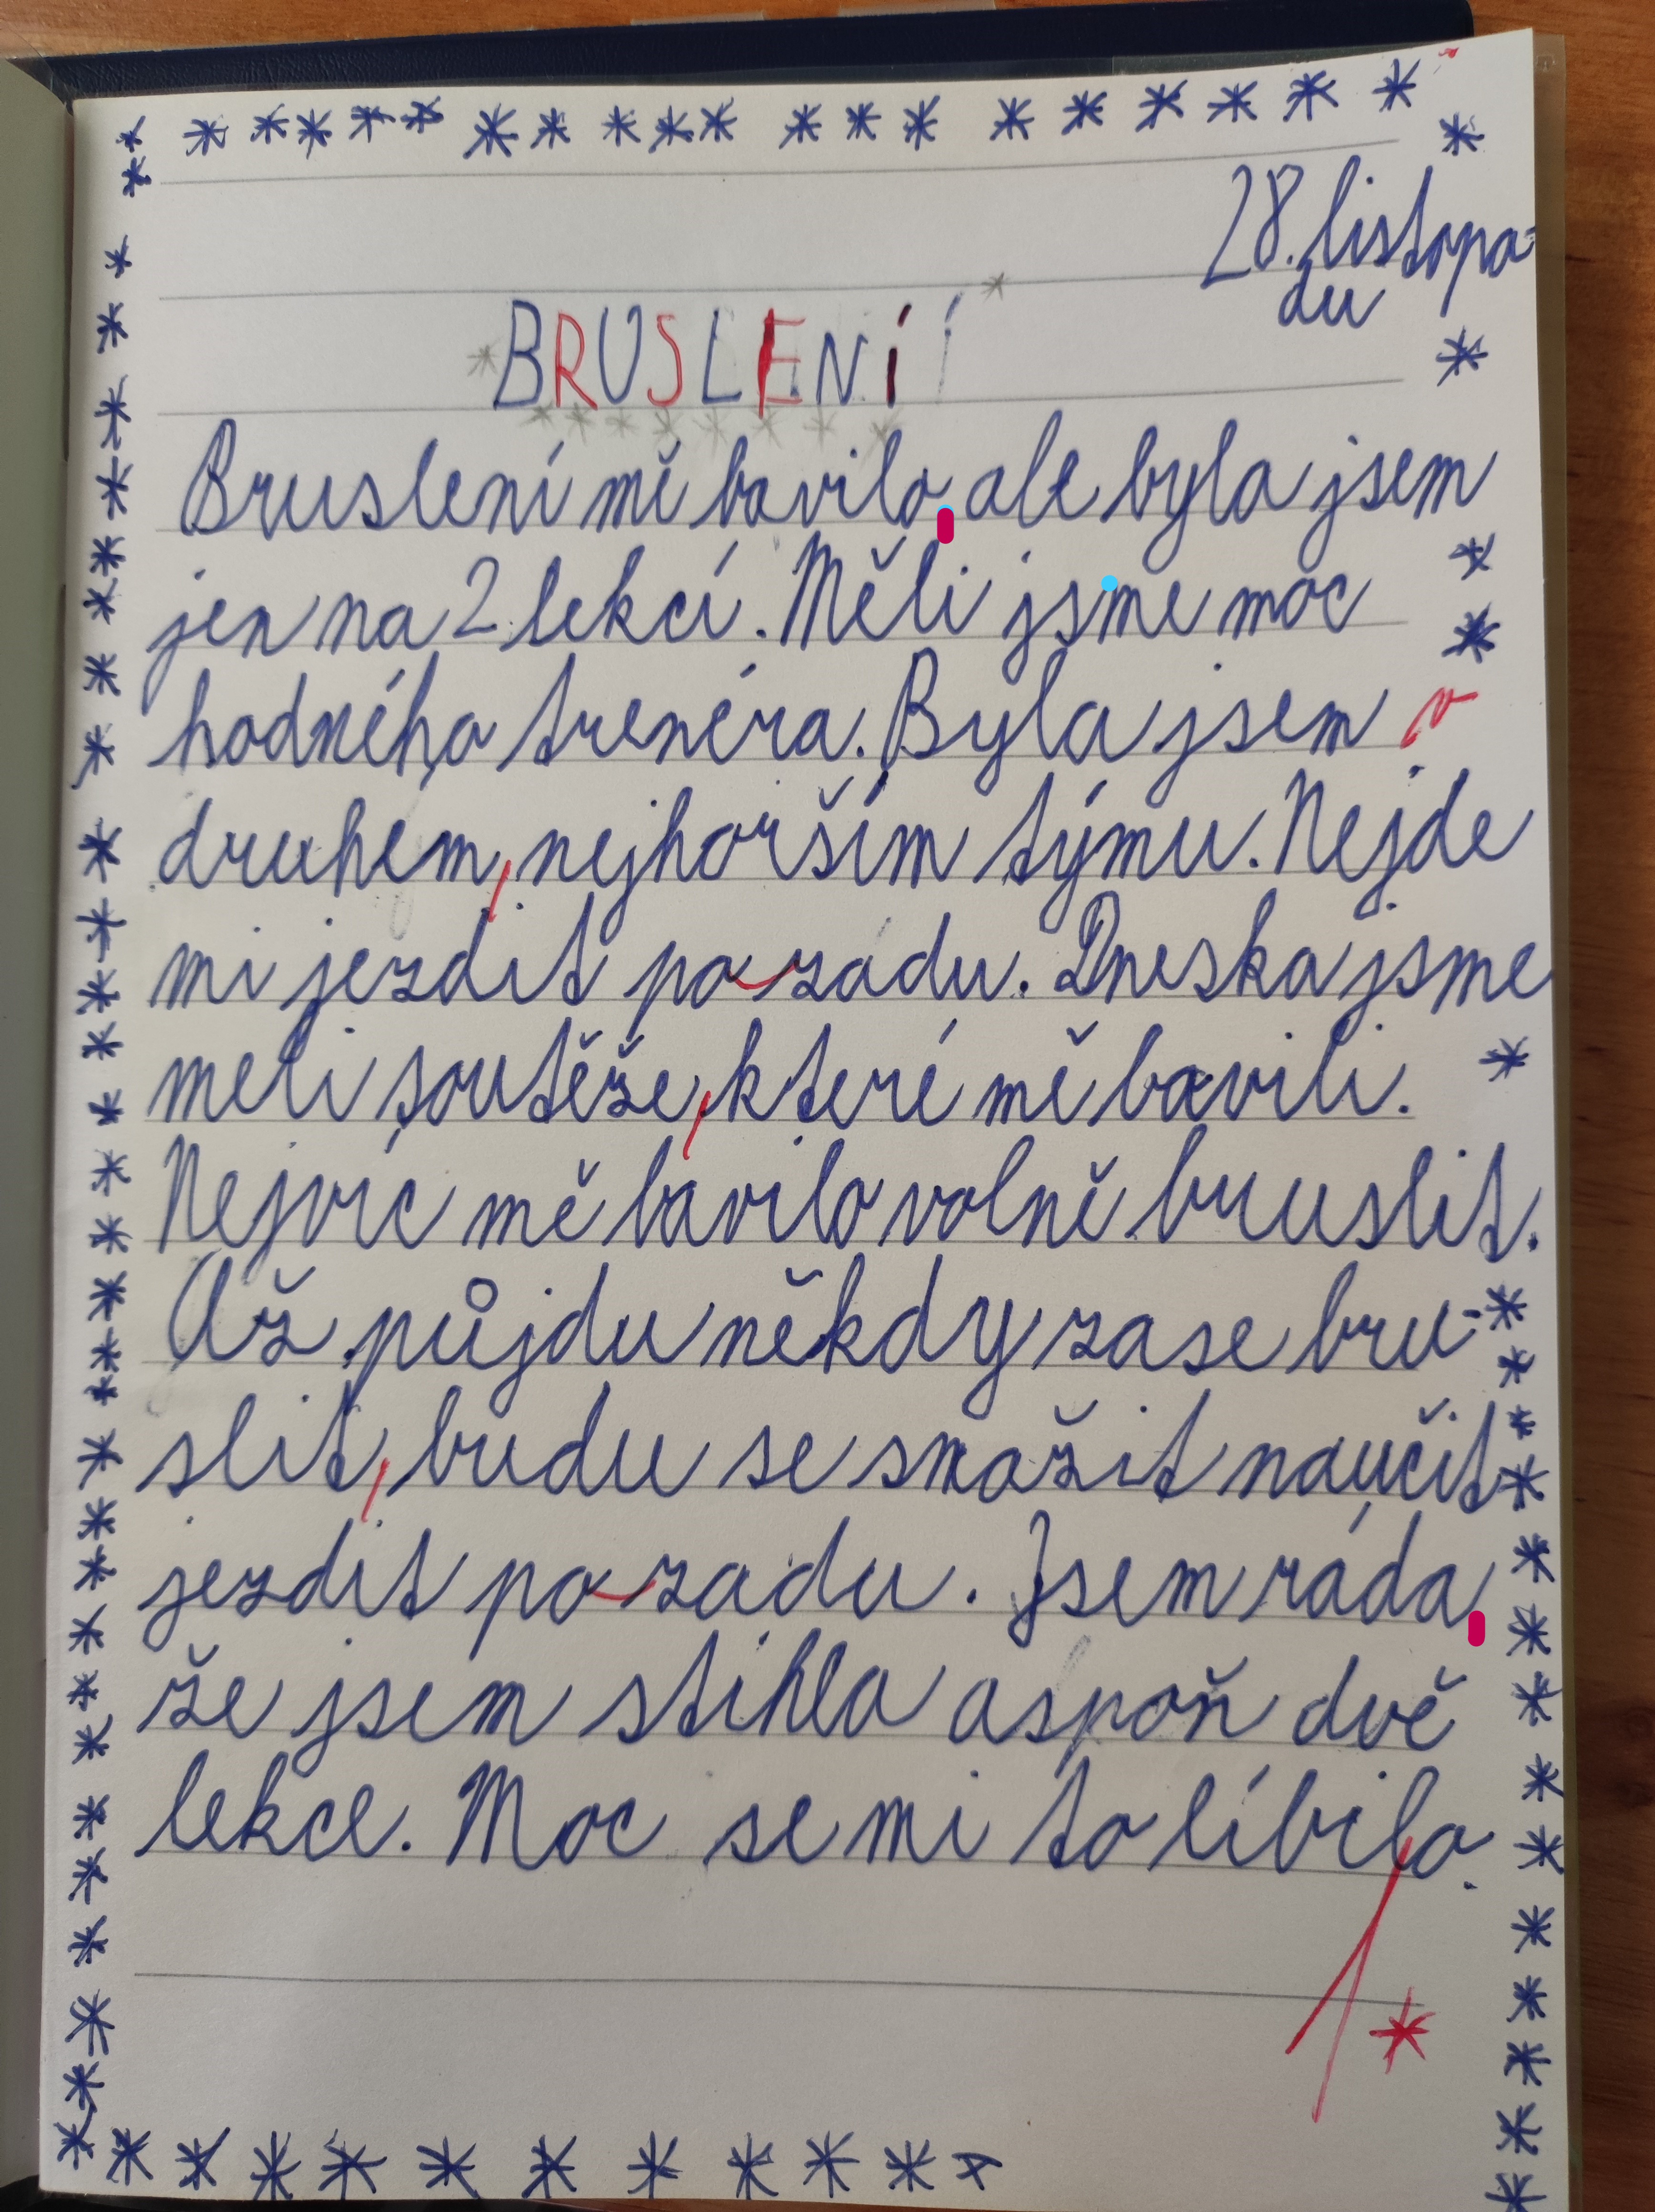 28. listopa-
du
BRUSLENÍ
Bruslení mě bavilo, ale byla jsem
jen na 2 lekcí. Měli jsme moc
hodného trenéra. Byla jsem v
druhem, nejhorším týmu. Nejde
mi jezdit po zádu. Dneska jsme
meli soutěže, které mě bavili.
Nejvíc mě bavilo volně bruslit.
Až půjdu někdy zase bru-
slit, budu se snažit naučit
jezdit po zadu. Jsem ráda,
že jsem stihla aspoň dvě
lekce. Moc se mi to líbilo.
1*